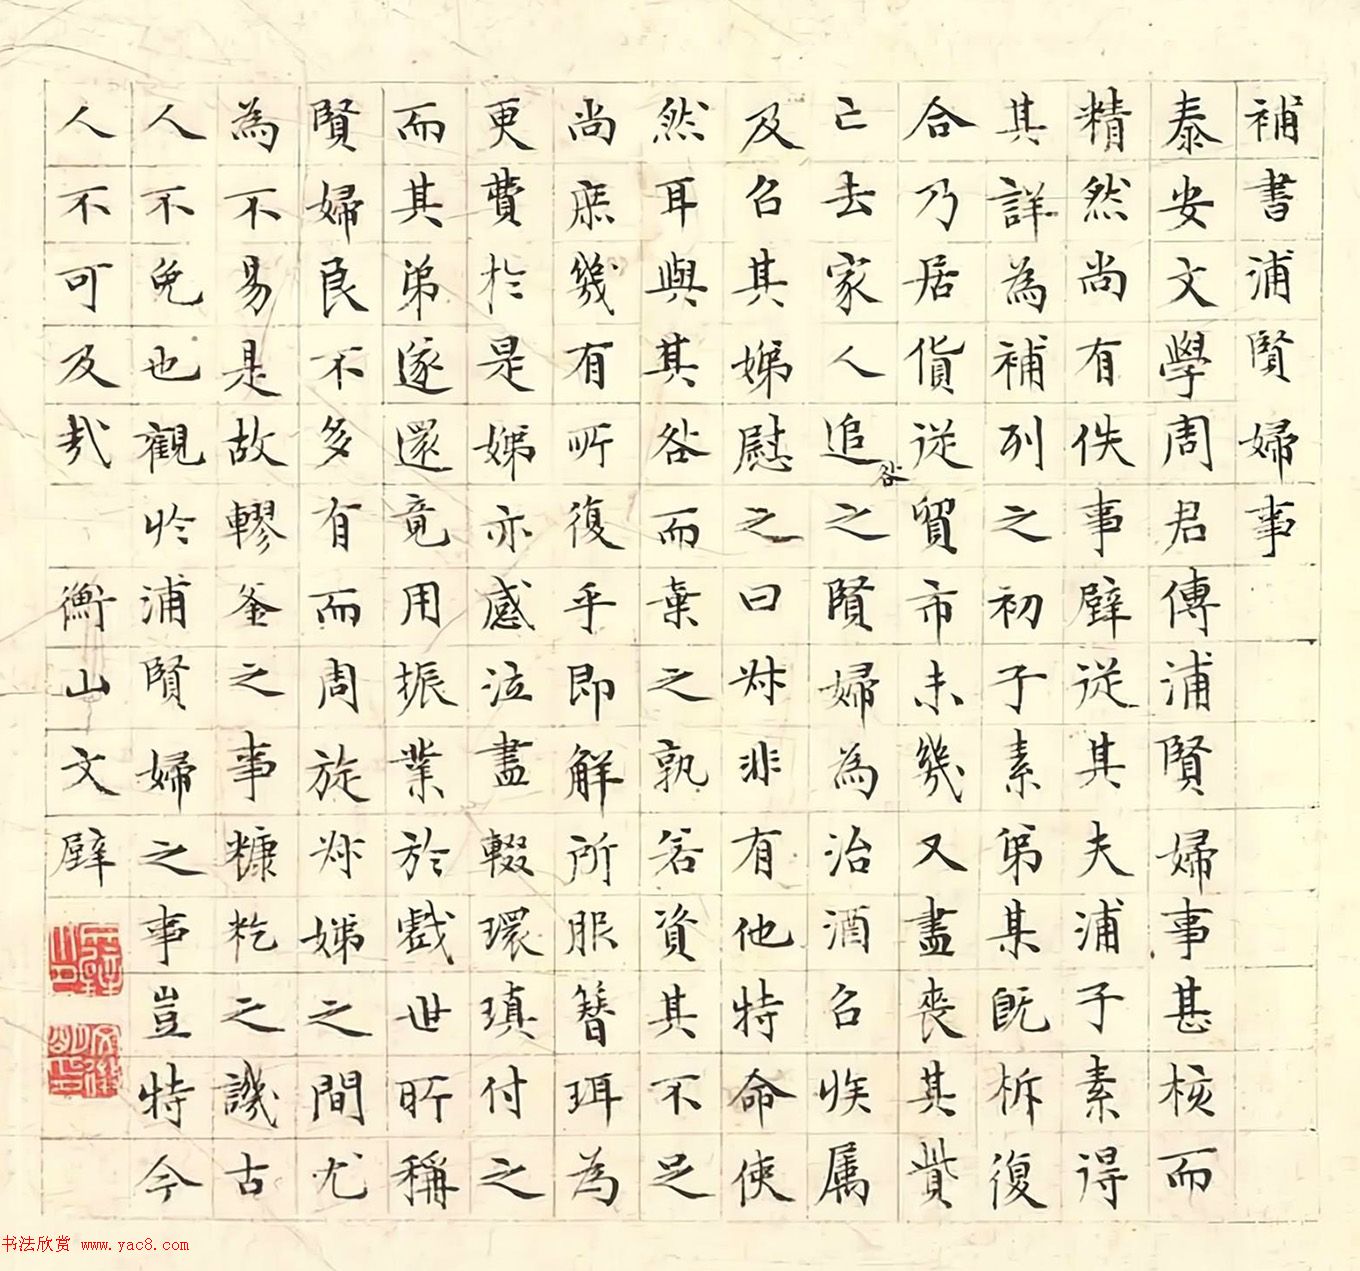 補書浦賢婦事
泰安文學周君傳浦賢婦事甚核而
精然尚有佚事璧從其夫浦子素得
其詳為補列之初子素弟某既析復
合乃居貨從貿市未幾又盡喪其貲
已去家人追咎之賢婦為治酒召族属
及召其娣慰之曰叔非有他特命使
然耳與其咎而棄之孰若資其不足
尚庶幾有所復乎即解所服簪珥為
更費於是娣亦感泣盡輟環瑱付之
而其弟遂還竟用振業於戲世所稱
賢婦良不多有而周旋叔娣之間尤
為不易是故轑釜之事糠籺之譏古
人不免也觀於浦賢婦之事豈特今
人不可及哉 衡山文璧
书法欣赏 www.yac8.com